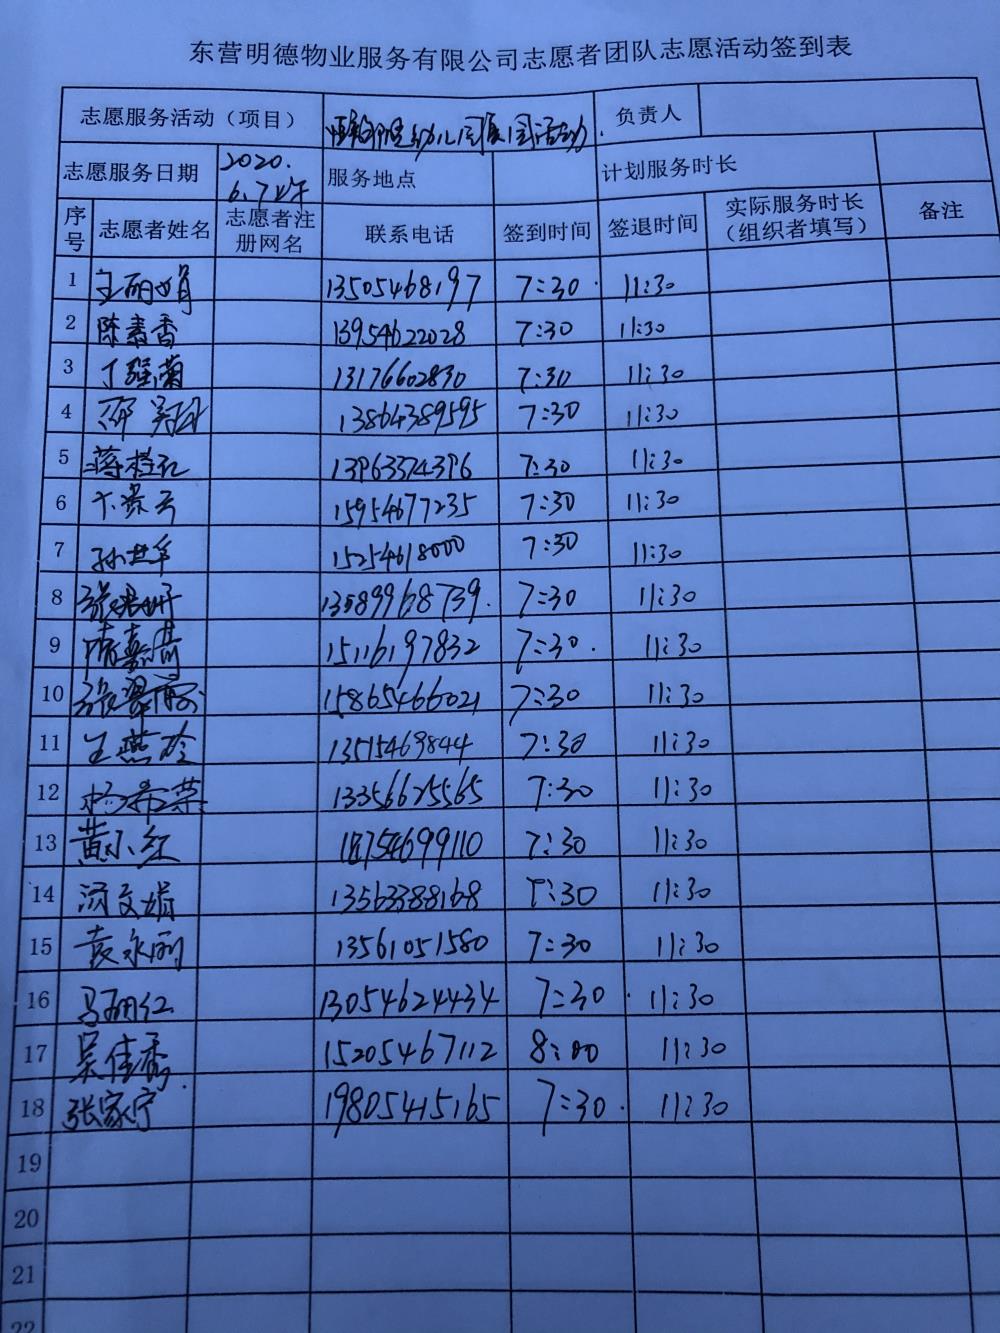 东营明德物业服务有限公司志愿者团队志愿活动签到表
志愿服务活动（项目） 幼儿园 园活动 负责人
志愿服务日期 2020. 6.7上午 服务地点 计划服务时长
序号 志愿者姓名 志愿者注册网名 联系电话 签到时间 签退时间 实际服务时长（组织者填写） 备注
1 王丽娟 13505468197 7:30 11:30
2 陈素香 13954622028 7:30 11:30
3 丁强菊 13176602830 7:30 11:30
4 邵 13864389595 7:30 11:30
5 蒋桂红 13963374396 7:30 11:30
6 15954677235 7:30 11:30
7 孙世军 15254618000 7:30 11:30
8 张 13589968739 7:30 11:30
9 隋嘉倩 15116197832 7:30 11:30
10 张翠霞 15865466021 7:30 11:30
11 王燕玲 13515469844 7:30 11:30
12 杨希荣 13356625565 7:30 11:30
13 黄小红 18754699110 7:30 11:30
14 文娟 13563388168 7:30 11:30
15 袁永丽 13561051580 7:30 11:30
16 马丽红 13054624434 7:30 11:30
17 吴佳香 15205467112 8:00 11:30
18 张家宁 19805415165 7:30 11:30
19
20
21
22